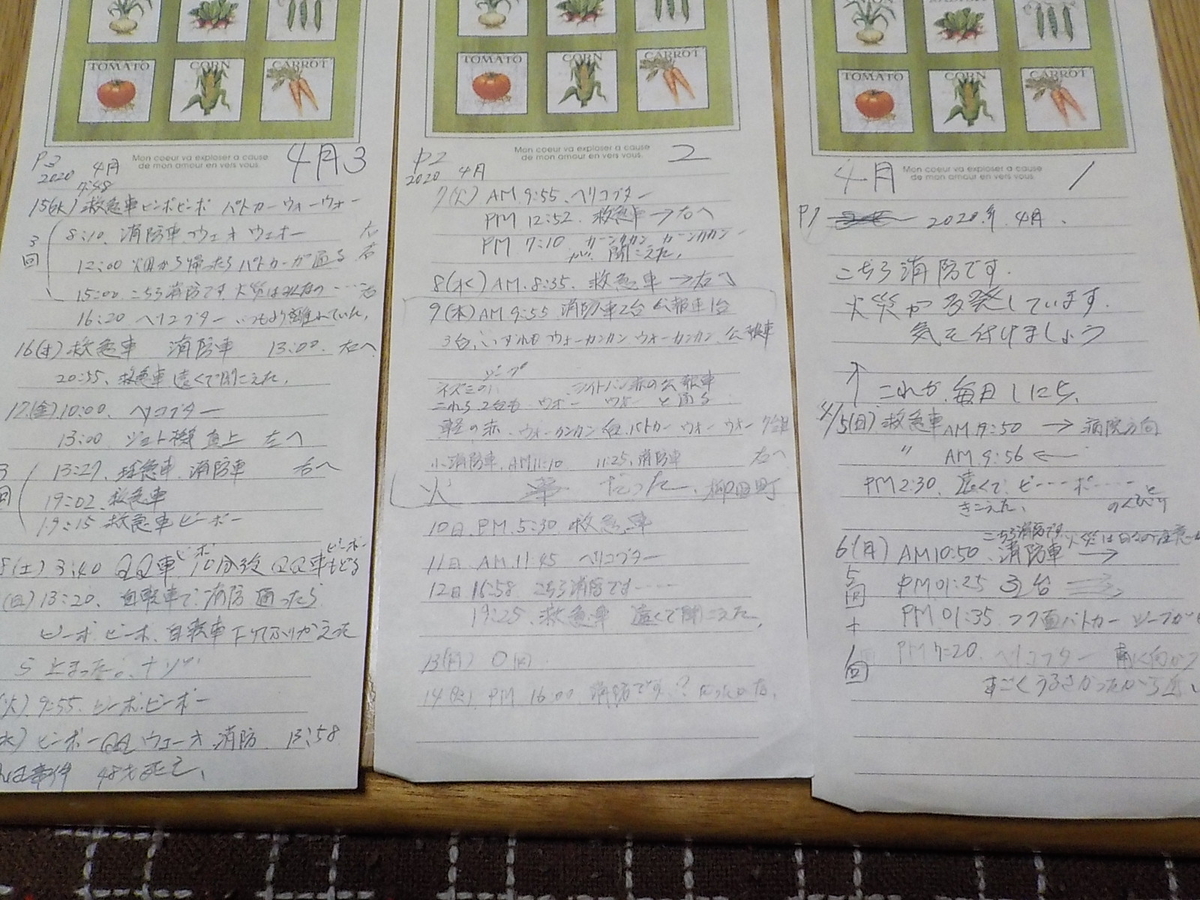 TOMATO CORN CARROT
Mon coeur va exploser a cause
de mon amour en vers vous.
4月 1
P1 2020年 4月.
こちら消防です.
火災が多発しています.
気を付けましょう
↑これが.毎日しにち.
4/5(日) 救急車 AM 9:50 → 病院方向
〃 AM 9:56 ←
PM2:30. 遠くで ピーーーポー
きこえた. のんびりと
こちら消防です
6(月) AM10:50 消防車 →
5回 PM 01:25 3台
+ PM 01:35 フク面パトカー
1回 PM 7:20. ヘリコプター
すごくうるさかったから
TOMATO CORN CARROT
Mon coeur va exploser a cause
de mon amour en vers vous.
P2 2
2020 4月
7(火) AM 9:55 ヘリコプター
PM 12:52. 救急車 → 右へ
PM 7:10 カーンカンカン カーンカンカン
が 聞こえた.
8(水) AM.8:35. 救急車 → 右へ
9(木) AM 9:55 消防車2台 広報車1台
3台. いずれも ウォーカンカン ウォーカンカン. 広報車
ジープ
これら2台も ウォー ウォー と通る
軽の赤. ウォーカンカン 1台 パトカー ウォー ウォー
小消防車. AM11:10 11:25. 消防車 右へ
火事だった. 柳田町
10日. PM.5:30 救急車
11日 AM.11:45 ヘリコプター
12日 15:58 こちら消防です……
19:25 救急車 遠くで聞こえた.
13(月) 0回
14(火) PM 16:00 消防です.?
TOMATO CORN CARROT
Mon coeur va exploser a cause
de mon amour en vers vous.
P3 4月 3
2020 4月
7:48
15(水) 救急車ピンポピンポ パトカーウォーウォー
3回 8:10. 消防車. ウェオ ウェオー 右
12:00 畑から帰ったらパトカーが通る 右
15:00 こちら消防です 火災はみんなの…… 右
16:20 ヘリコプター いつもより離れていた.
16(木) 救急車 消防車 13:00. 右へ
20:55. 救急車 遠くで聞こえた.
17(金) 10:00. ヘリコプター
13:00 ジェット機 真上 左へ
3回 13:27. 救急車. 消防車 右へ
19:02. 救急車
19:15 救急車ピーポー
(土) 3:40 QQ車 ピーポ 10分後 QQ車もどる ピーポー
(日) 13:20. 自転車で 消防 通ったら
ピーポ ピーポ. 自転車 下りてふりかえった
ら 止まった. ナゾ
(火) 9:55. ピーポ.ピーポー
(水) ピンポー QQ ウェーオ 消防. 13:58
事件 48才死亡.